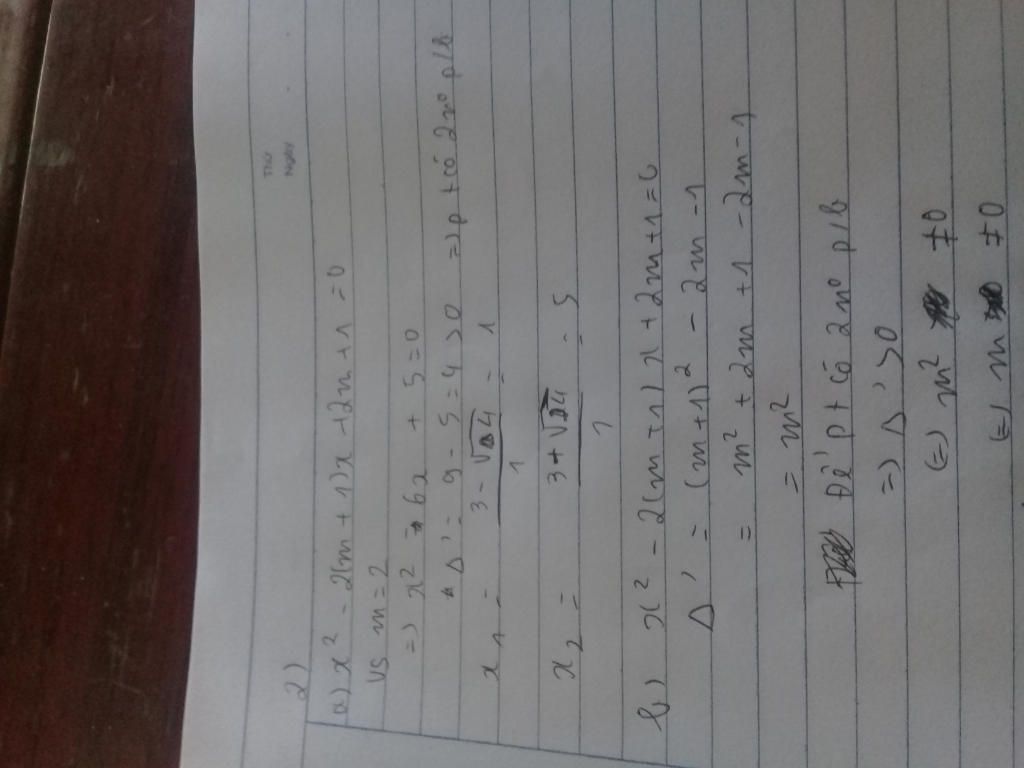 Thứ
Ngày
2)
a) x² - 2(m + 1)x + 2m + 1 = 0
vs m = 2
=> x² - 6x + 5 = 0
Δ' = 9 - 5 = 4 > 0 => pt có 2n⁰ p/b
x₁ = (3 - √4)/1 = 1
x₂ = (3 + √4)/1 = 5
b) x² - 2(m + 1)x + 2m + 1 = 0
Δ' = (m + 1)² - 2m - 1
= m² + 2m + 1 - 2m - 1
= m²
Để pt có 2n⁰ p/b
=> Δ' > 0
(=) m² ≠ 0
(=) m ≠ 0